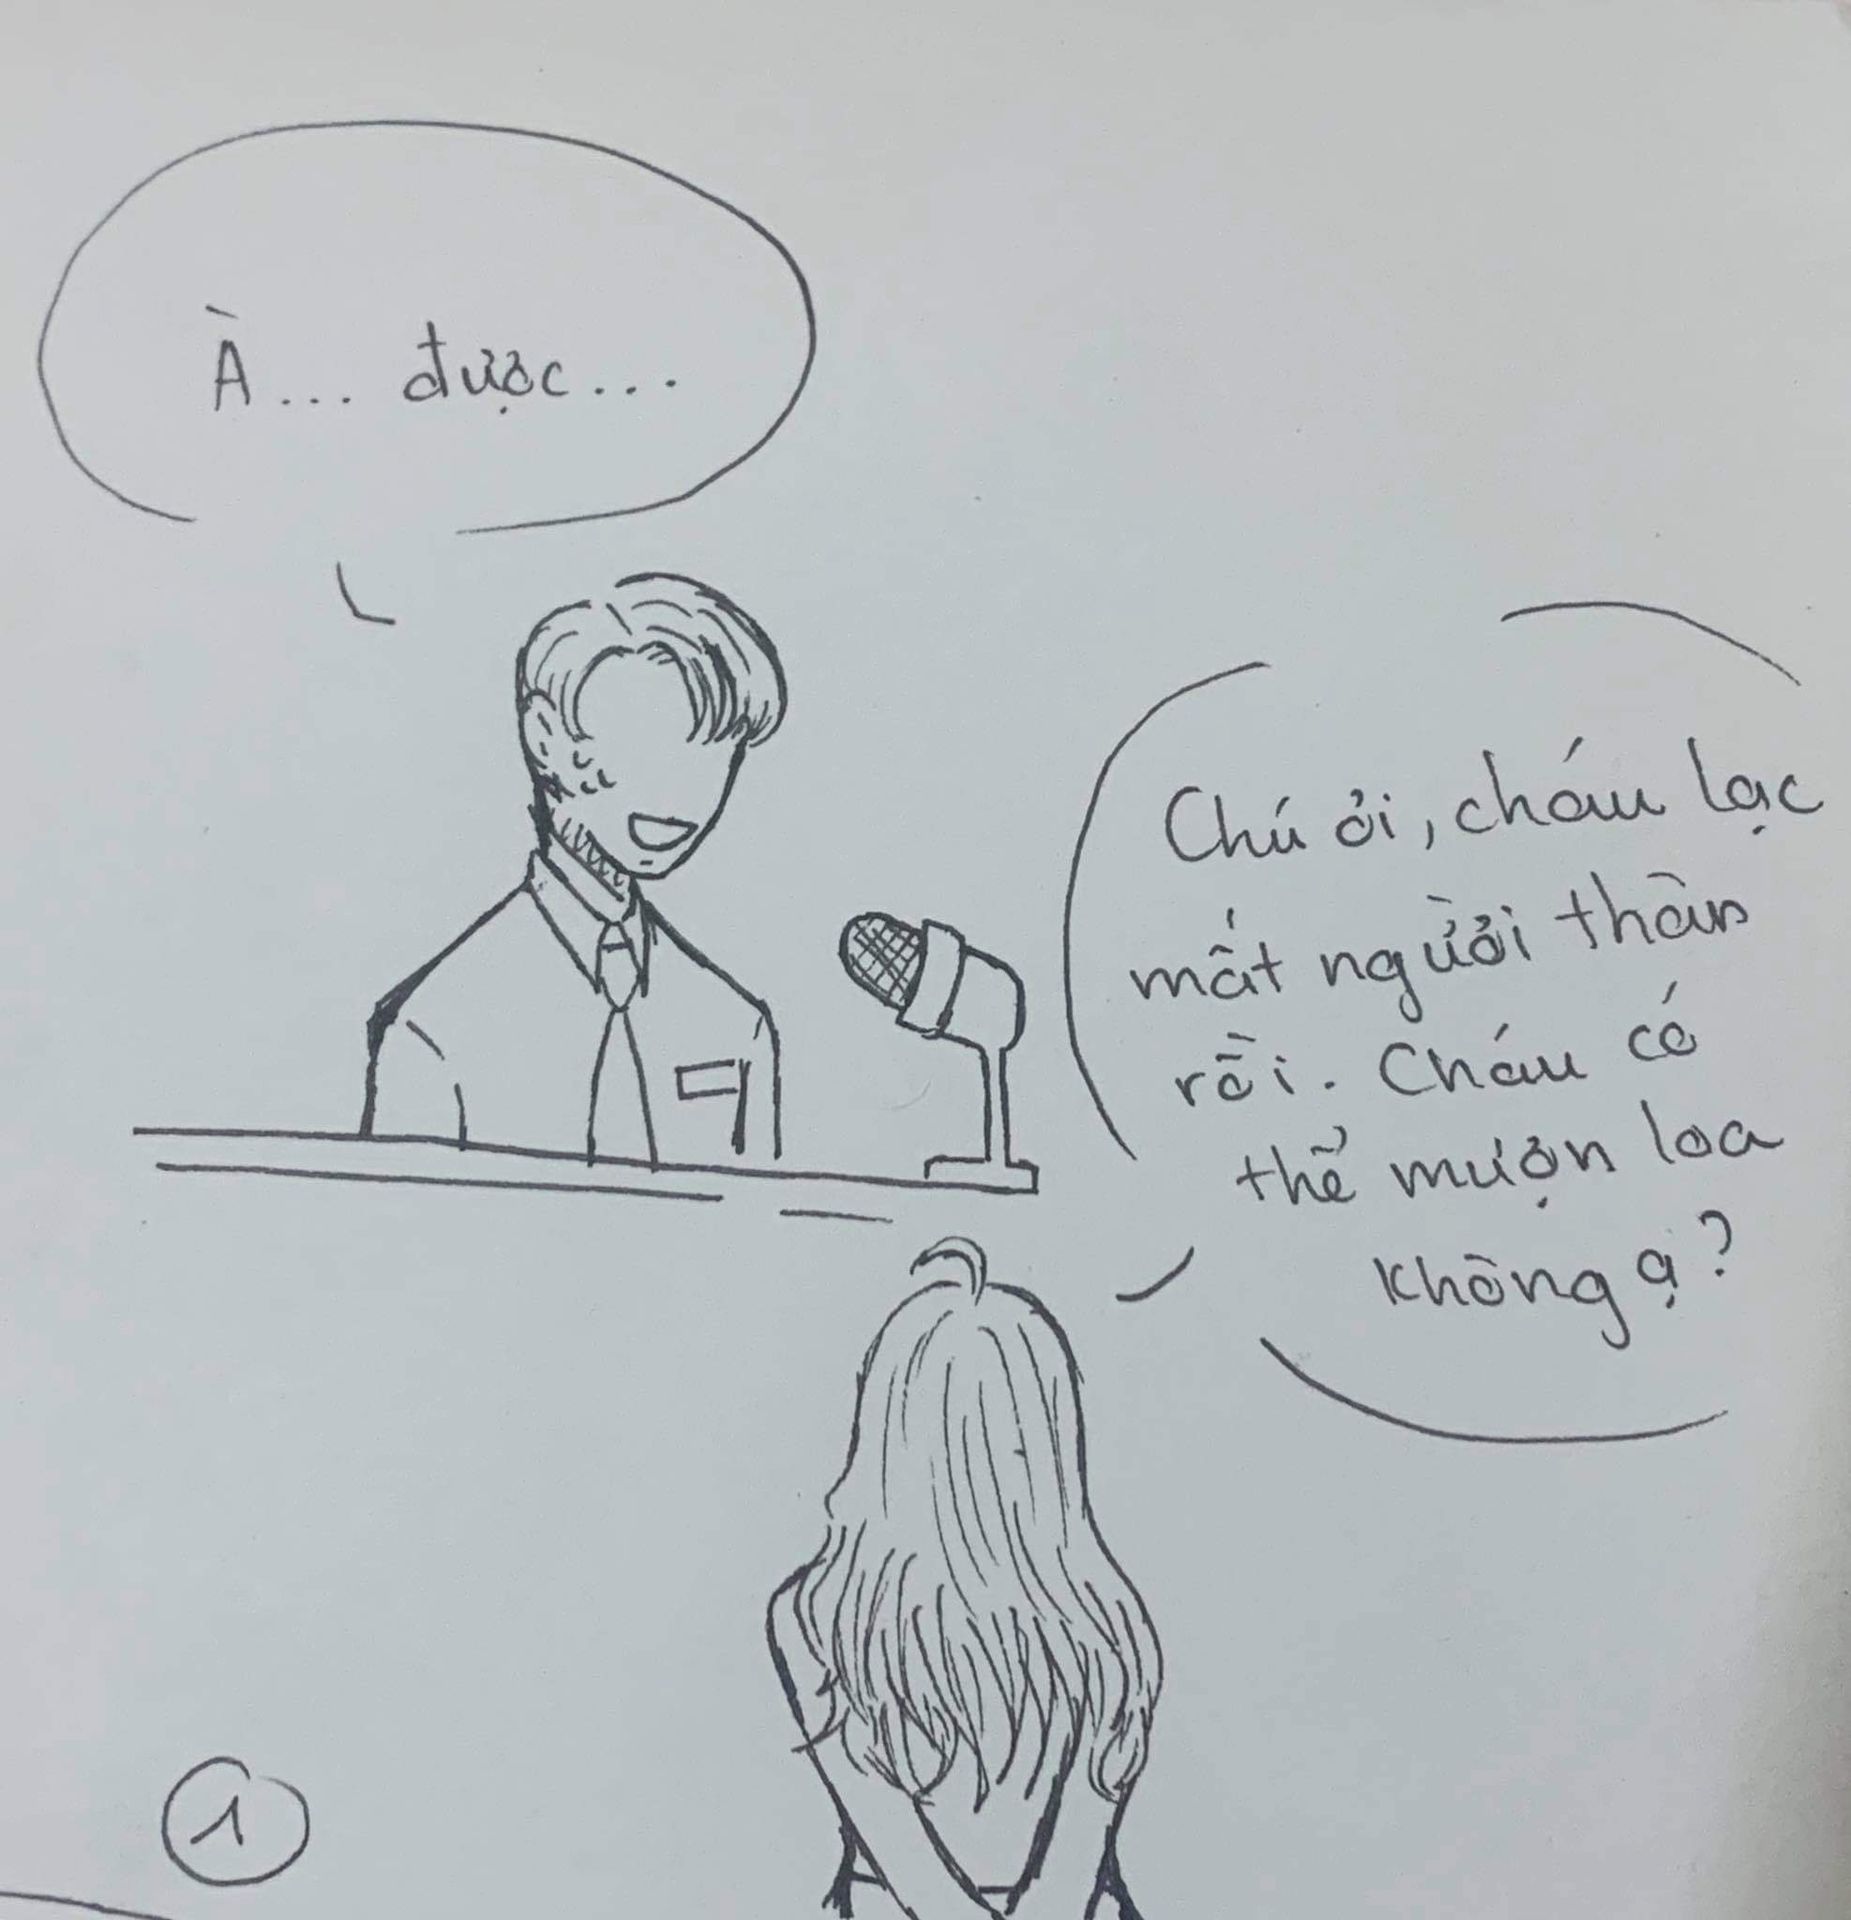 À... được...
Chú ơi, cháu lạc
mất người thân
rồi. Cháu có
thể mượn loa
không ạ?
1